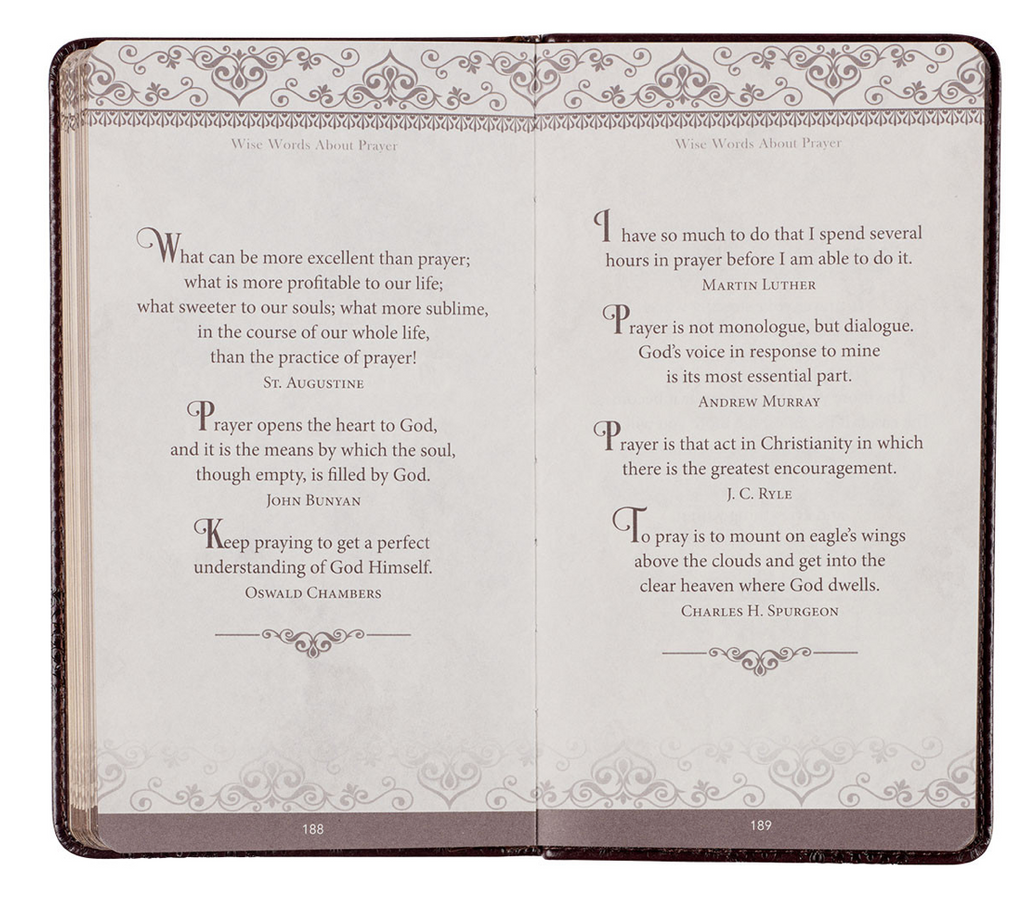 Wise Words About Prayer
What can be more excellent than prayer;
what is more profitable to our life;
what sweeter to our souls; what more sublime,
in the course of our whole life,
than the practice of prayer!
St. Augustine
Prayer opens the heart to God,
and it is the means by which the soul,
though empty, is filled by God.
John Bunyan
Keep praying to get a perfect
understanding of God Himself.
Oswald Chambers
188
Wise Words About Prayer
I have so much to do that I spend several
hours in prayer before I am able to do it.
Martin Luther
Prayer is not monologue, but dialogue.
God's voice in response to mine
is its most essential part.
Andrew Murray
Prayer is that act in Christianity in which
there is the greatest encouragement.
J. C. Ryle
To pray is to mount on eagle's wings
above the clouds and get into the
clear heaven where God dwells.
Charles H. Spurgeon
189